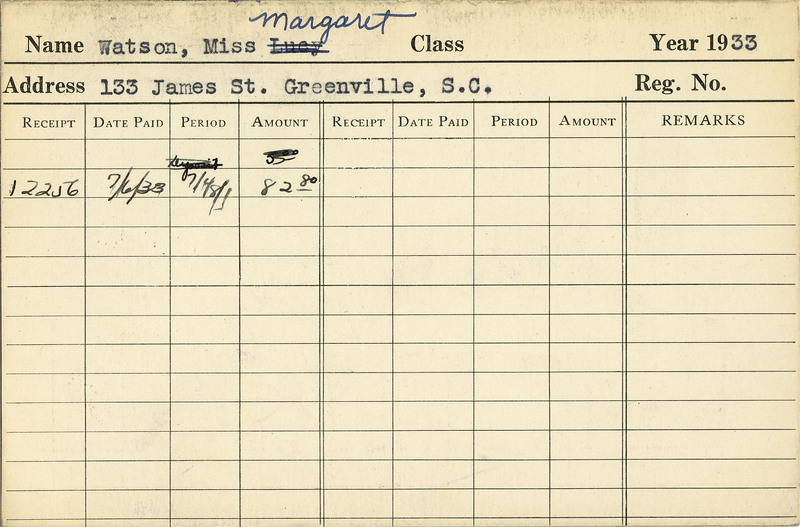 Margaret
Name Watson, Miss Lucy Class Year 1933
Address 133 James St. Greenville, S.C. Reg. No.
RECEIPT DATE PAID PERIOD AMOUNT RECEIPT DATE PAID PERIOD AMOUNT REMARKS
deposit 5.00
12256 7/6/33 7/4 8/1 82 80